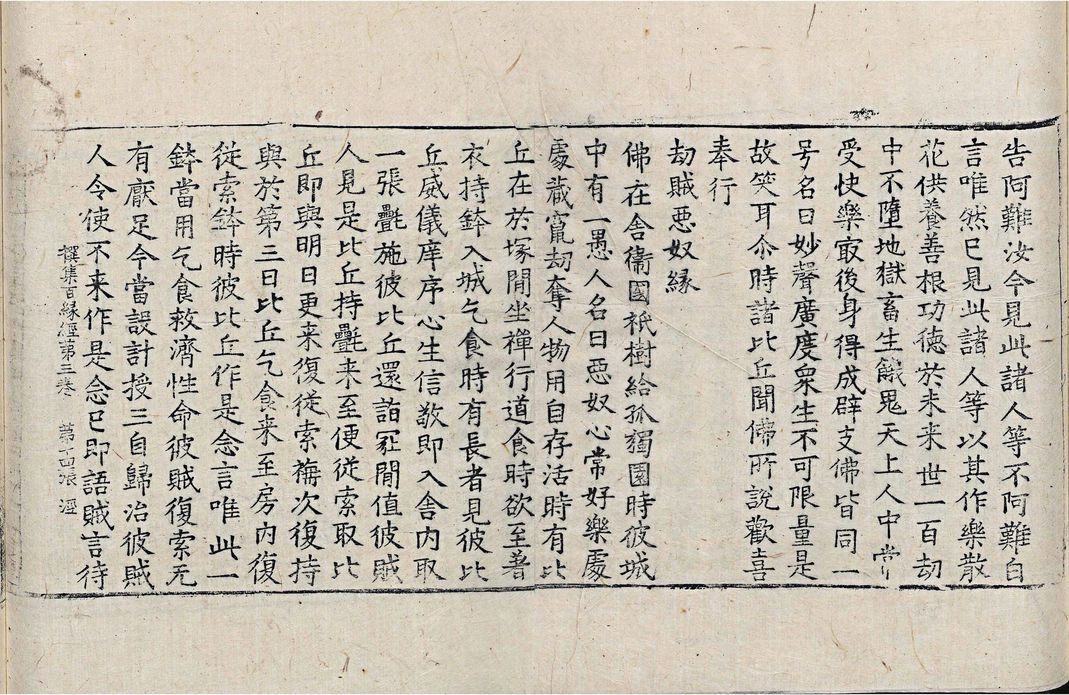 告阿難汝今見此諸人等不阿難白
言唯然已見此諸人等以其作樂散
花供養善根功德於未来世一百劫
中不墮地獄畜生餓鬼天上人中常
受快樂㝡後身得成辟支佛皆同一
号名曰妙聲廣度衆生不可限量是
故笑耳尒時諸比丘聞佛所說歡喜
奉行
劫賊惡奴緣
佛在舍衞國祇樹給孤獨園時彼城
中有一愚人名曰惡奴心常好樂處
處藏竄劫奪人物用自存活時有比
丘在於塚閒坐禪行道食時欲至着
衣持鉢入城乞食時有長者見彼比
丘威儀庠序心生信敬即入舍內取
一張㲲施彼比丘還詣冡閒值彼賊
人見是比丘持㲲来至便從索取比
丘即與明日更来復從索褥次復持
與於第三日比丘乞食来至房內復
從索鉢時彼比丘作是念言唯此一
鉢當用乞食救濟性命彼賊復索无
有厭足今當設計授三自歸治彼賊
人令使不来作是念已即語賊言待
撰集百緣經第三卷 第十四張 涇